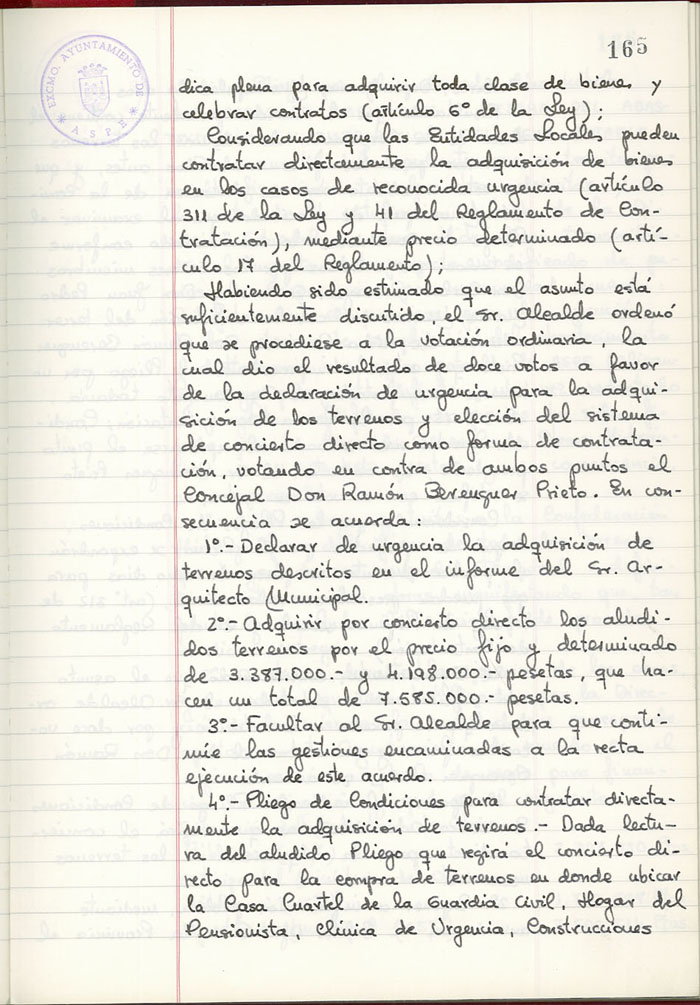 165
EXCMO. AYUNTAMIENTO DE
* ASPE *
dica plena para adquirir toda clase de bienes y
celebrar contratos (artículo 6º de la Ley);
Considerando que las Entidades Locales pueden
contratar directamente la adquisición de bienes
en los casos de reconocida urgencia (artículo
311 de la Ley y 41 del Reglamento de Con-
tratación), mediante precio determinado (artí-
culo 17 del Reglamento);
Habiendo sido estimado que el asunto está
suficientemente discutido, el Sr. Alcalde ordenó
que se procediese a la votación ordinaria, la
cual dio el resultado de doce votos a favor
de la declaración de urgencia para la adqui-
sición de los terrenos y elección del sistema
de concierto directo como forma de contrata-
ción, votando en contra de ambos puntos el
Concejal Don Ramón Berenguer Prieto. En con-
secuencia se acuerda:
1º.- Declarar de urgencia la adquisición de
terrenos descritos en el informe del Sr. Ar-
quitecto Municipal.
2º.- Adquirir por concierto directo los aludi-
dos terrenos por el precio fijo y determinado
de 3.387.000.- y 4.198.000.- pesetas, que ha-
cen un total de 7.585.000.- pesetas.
3º.- Facultar al Sr. Alcalde para que conti-
núe las gestiones encaminadas a la recta
ejecución de este acuerdo.
4º.- Pliego de Condiciones para contratar directa-
mente la adquisición de terrenos.- Dada lectu-
ra del aludido Pliego que regirá el concierto di-
recto para la compra de terrenos en donde ubicar
la Casa Cuartel de la Guardia Civil, Hogar del
Pensionista, Clínica de Urgencia, Construcciones